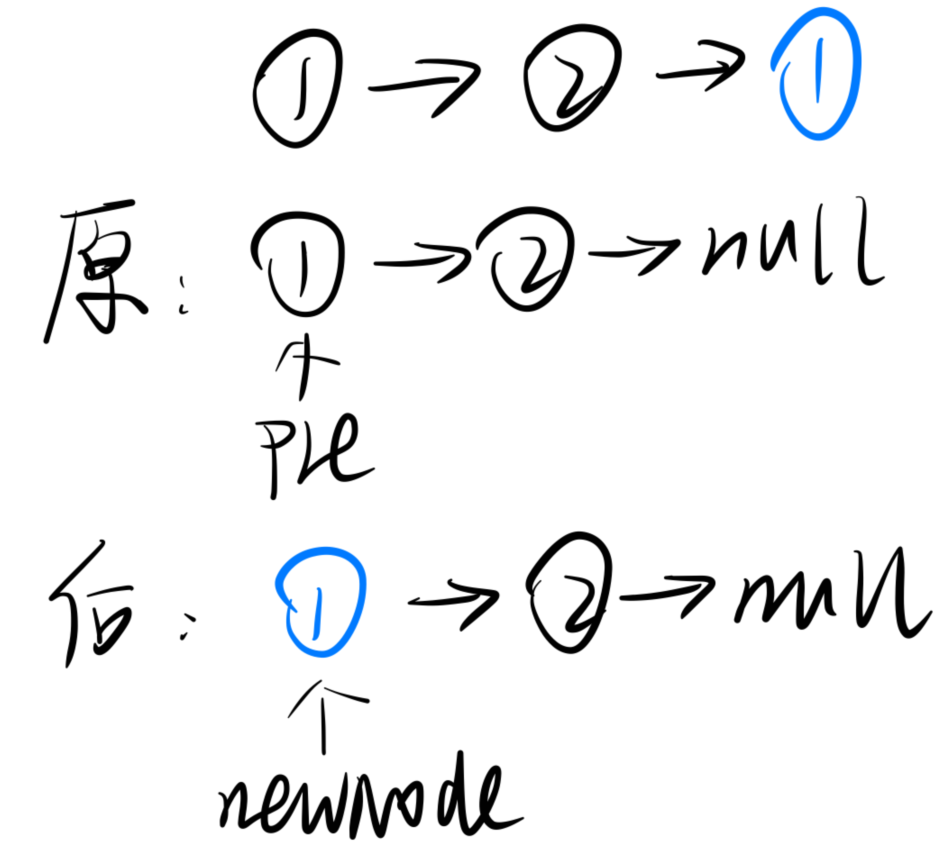 ① → ② → ①
原: ① → ② → null
↑
pre
后: ① → ② → null
↑
newNode